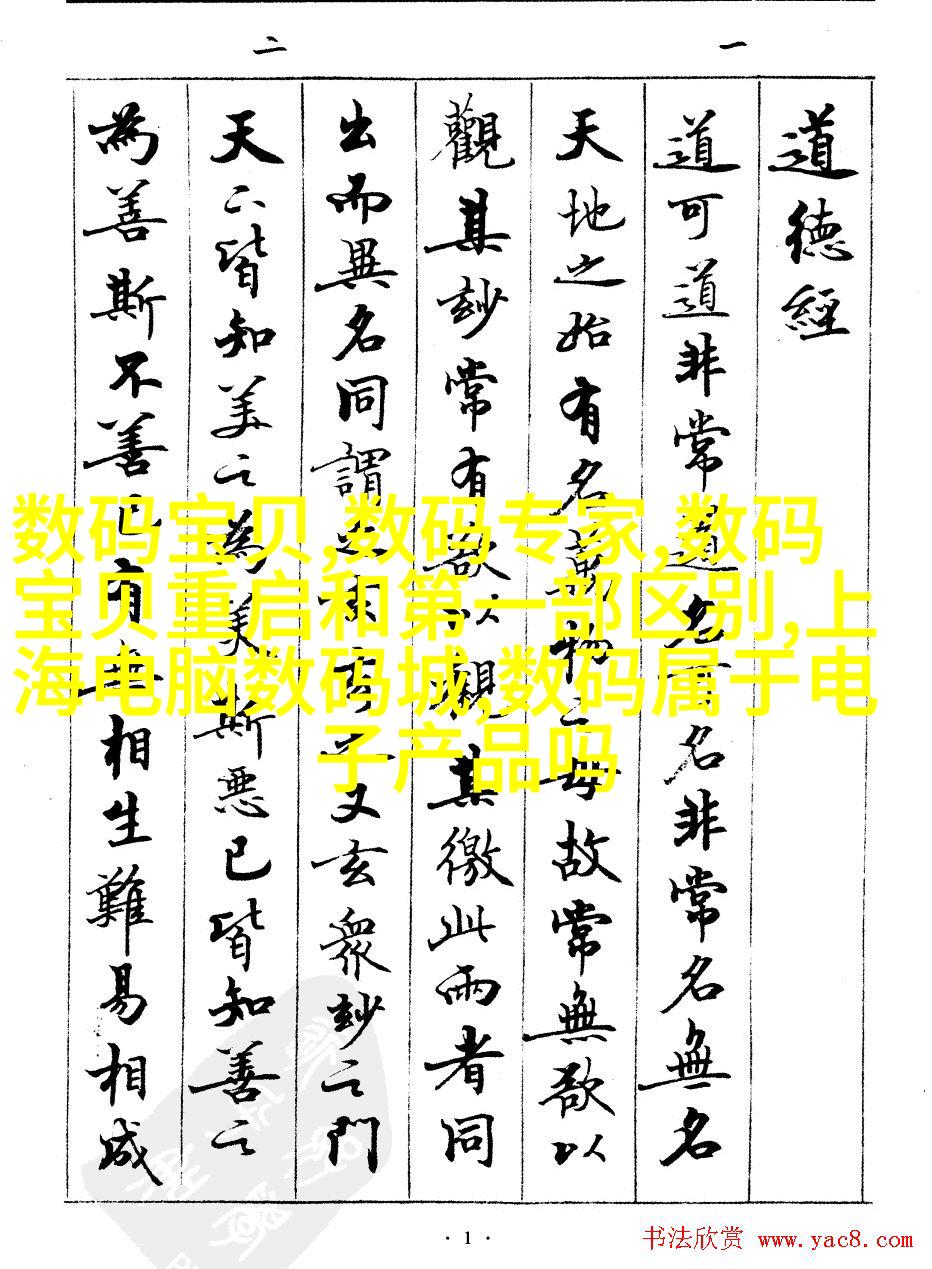 一
二
道德經
道可道非常道名可名非常名無名
天地之始有名萬物之母故常無欲以
觀其玅常有欲以觀其徼此兩者同
出而異名同謂之玄玄之又玄眾玅之門
天下皆知美之為美斯惡已皆知善之
為善斯不善已有無相生難易相成
数码宝贝,数码专家,数码
宝贝重启和第一部区别,上
海电脑数码城,数码属于电
子产品吗
· 1 ·
书法欣赏 www.yac8.com